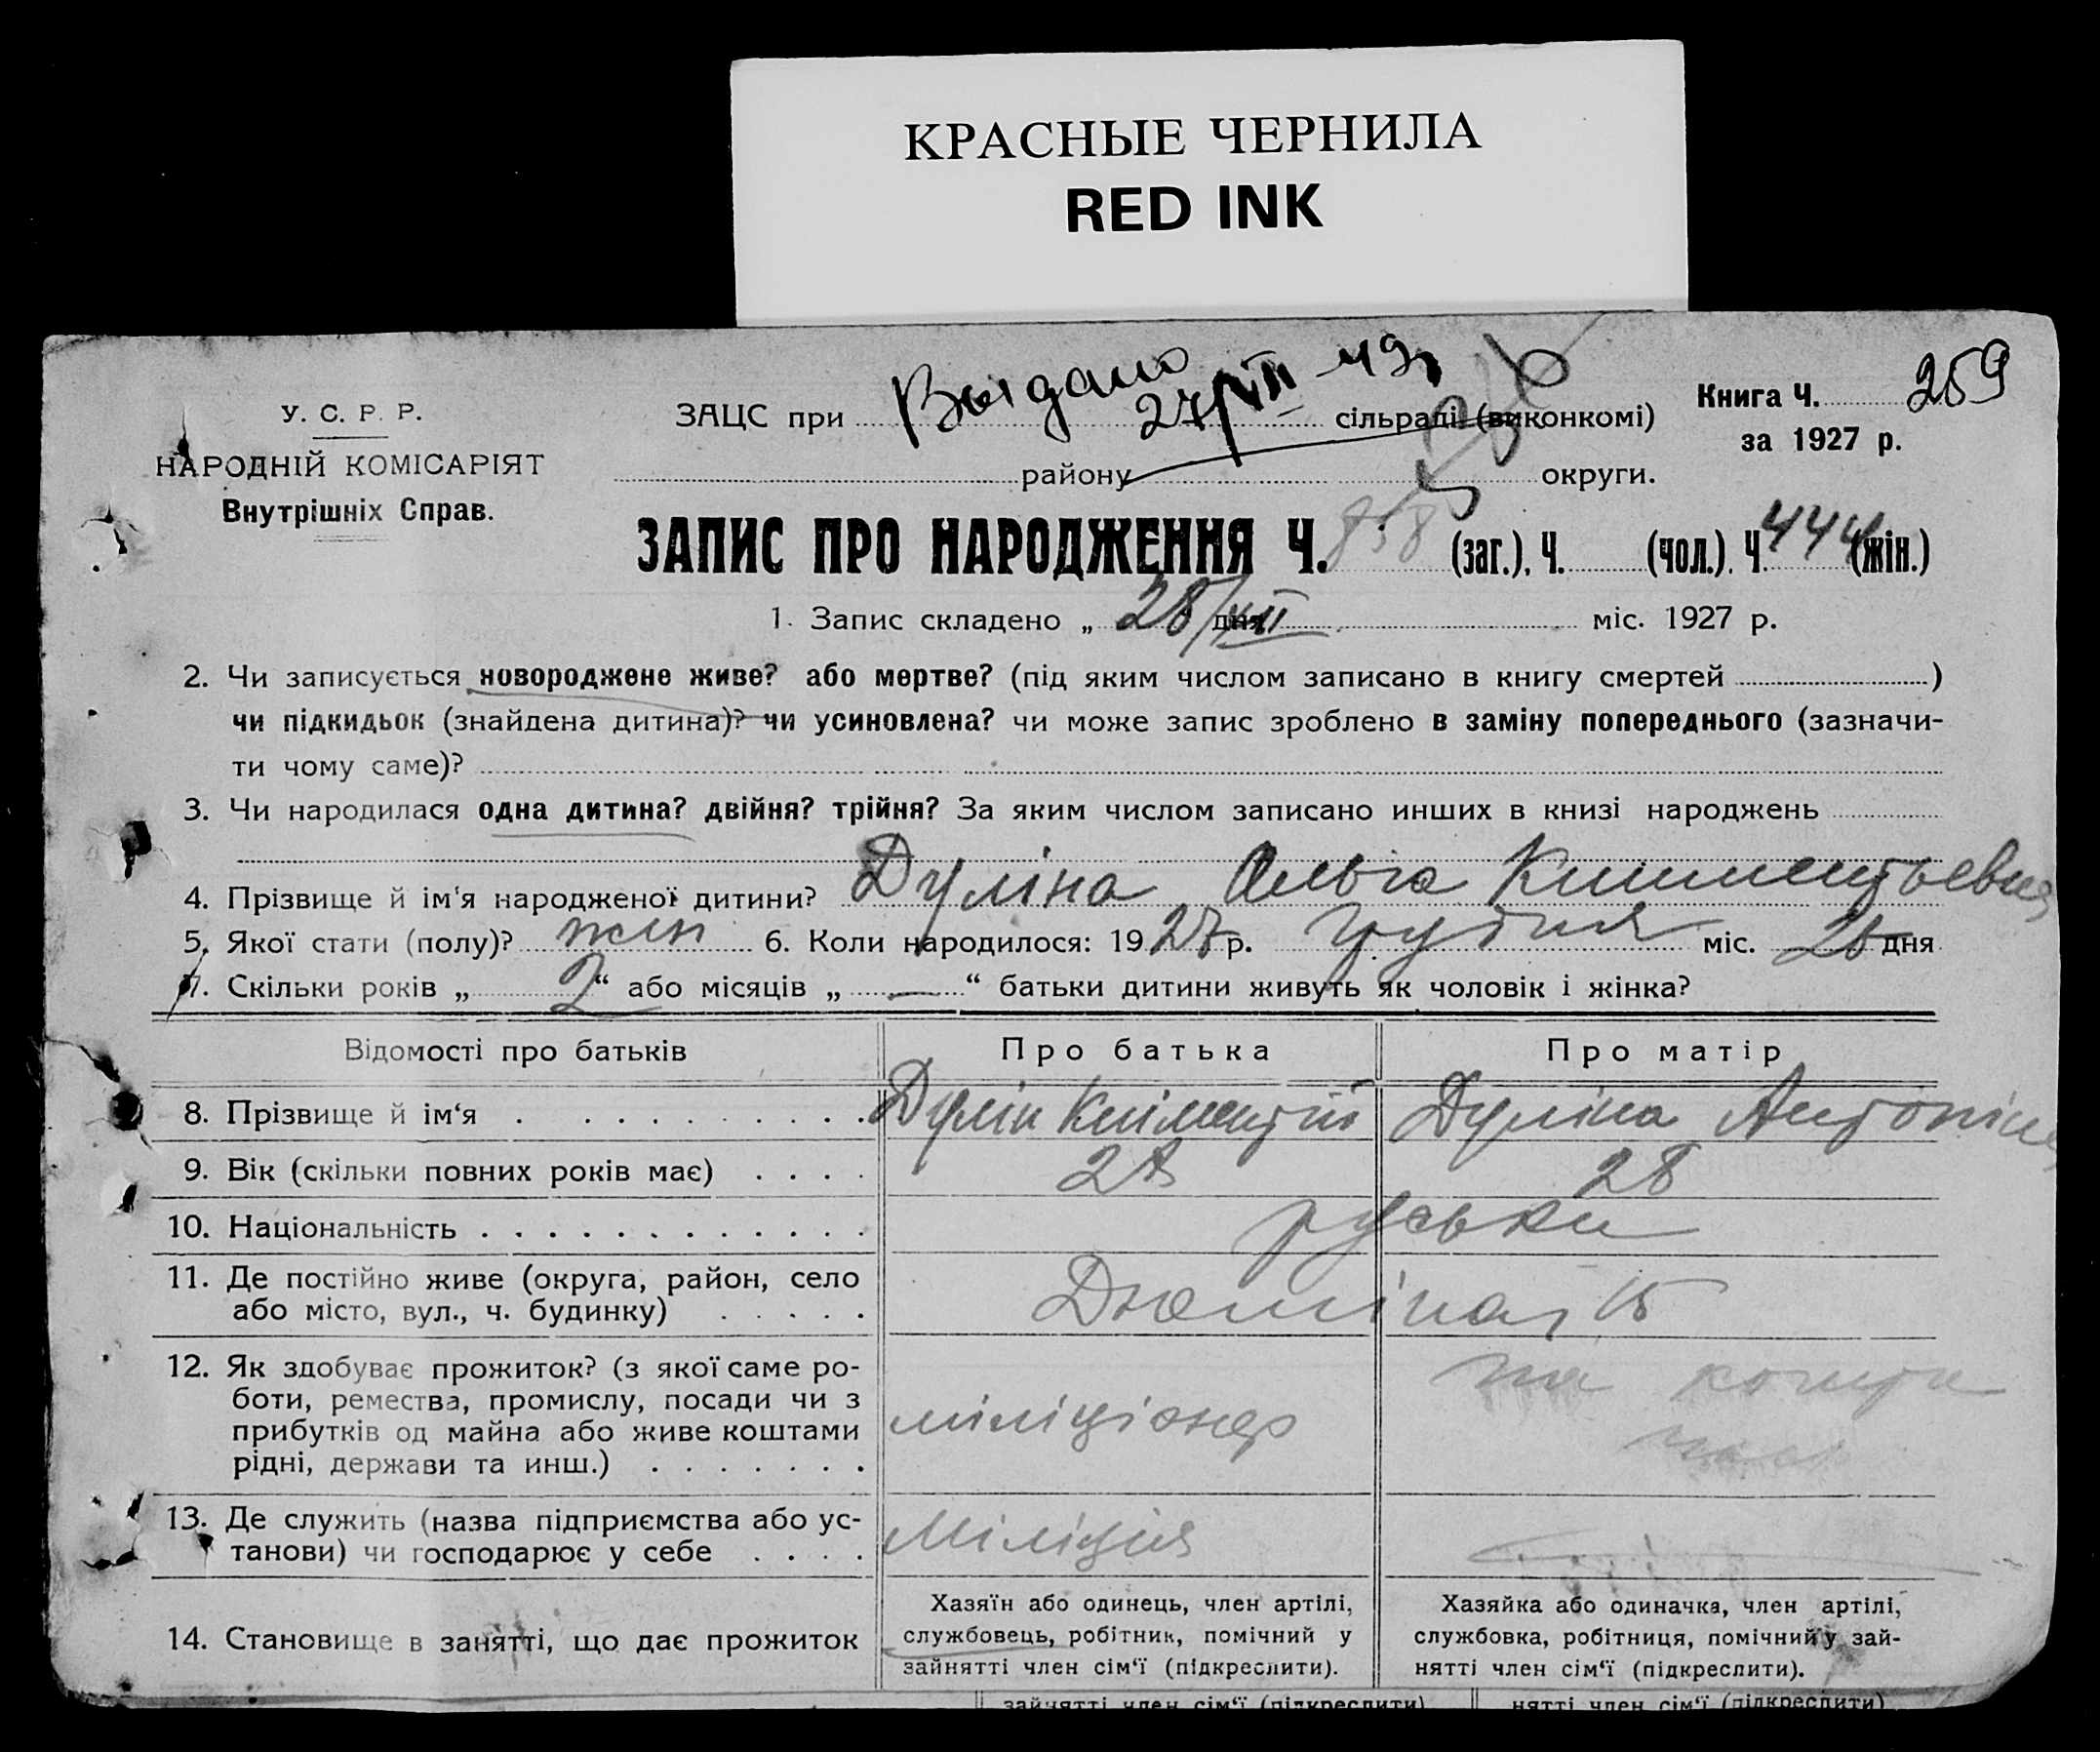 КРАСНЫЕ ЧЕРНИЛА
RED INK
Выдано
27/VII 49
У. С. Р. Р.
НАРОДНІЙ КОМІСАРІЯТ
Внутрішніх Справ.
ЗАЦС при сільраді (виконкомі)
району округи.
Книга Ч. 259
за 1927 р.
ЗАПИС ПРО НАРОДЖЕННЯ Ч. 858 (заг.), Ч. (чол.). Ч. 444 (жін.)
1. Запис складено „ 28/XII дня міс. 1927 р.
2. Чи записується новороджене живе? або мертве? (під яким числом записано в книгу смертей )
чи підкидьок (знайдена дитина)? чи усиновлена? чи може запис зроблено в заміну попереднього (зазначи-
ти чому саме)?
3. Чи народилася одна дитина? двійня? трійня? За яким числом записано инших в книзі народжень
4. Прізвище й ім'я народженої дитини? Дуліна Ольга Климентьевна
5. Якої стати (полу)? жін 6. Коли народилося: 1927 р. грудня міс. дня
7. Скільки років „ 2 “ або місяців „ — “ батьки дитини живуть як чоловік і жінка?
Відомості про батьків Про батька Про матір
8. Прізвище й ім‘я Дулін Кліментій Дуліна Антоніна
9. Вік (скільки повних років має) 28 28
10. Національність руські
11. Де постійно живе (округа, район, село
або місто, вул., ч. будинку) 15
12. Як здобуває прожиток? (з якої саме ро-
боти, ремества, промислу, посади чи з
прибутків од майна або живе коштами
рідні, держави та инш.) міліціонер на кошти
13. Де служить (назва підприємства або ус-
танови) чи господарює у себе Міліція
14. Становище в занятті, що дає прожиток
Хазяїн або одинець, член артілі,
службовець, робітник, помічний у
зайнятті член сім‘ї (підкреслити).
Хазяйка або одиначка, член артілі,
службовка, робітниця, помічний у зай-
нятті член сім‘ї (підкреслити).
зайнятті член сім‘ї (підкреслити) нятті член сім‘ї (підкреслити)